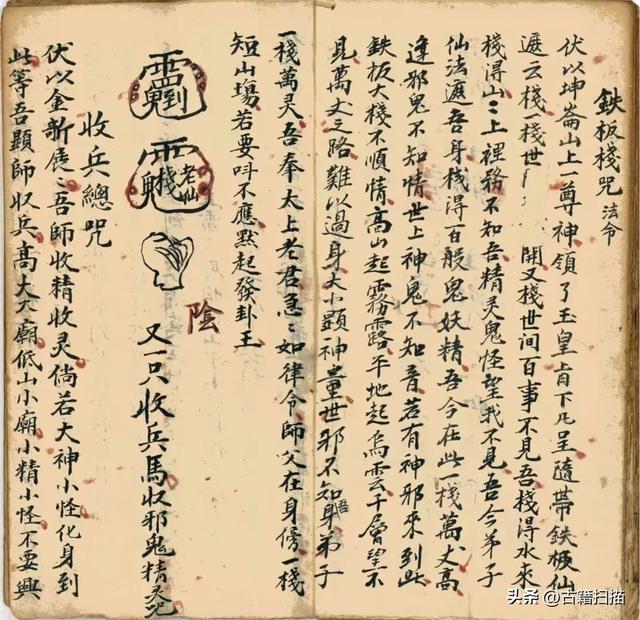 鉄板棧咒 法令
伏以坤崙山上一尊神領了玉皇旨下凡呈隨帶鉄板仙
遮云棧一棧世 開又棧世间百事不見吾棧得水來
棧得山〻上裡務不知吾精灵鬼怪望我不見吾今弟子
仙法遮吾身棧得百般鬼妖精吾今在此一棧萬丈高
逢邪鬼不知情世上神鬼不知音若有神邪來到此
鉄板大棧不順情高山起霧露平地起烏雲千層望不
見萬丈之路難以過身大小顕神童世邪不知吾身弟子
一棧萬灵吾奉太上老君急〻如律令師父在身傍一棧
短山場若要呌不應點起發卦王
陰
老仙
棧
又一只收兵馬收邪鬼精灵咒
收兵總咒
伏以金新展〻吾師收精收灵倘若大神小怪化身到
此等吾顕師收兵高大大廟低山小廟小精小怪不要興
头条 @古籍扫描